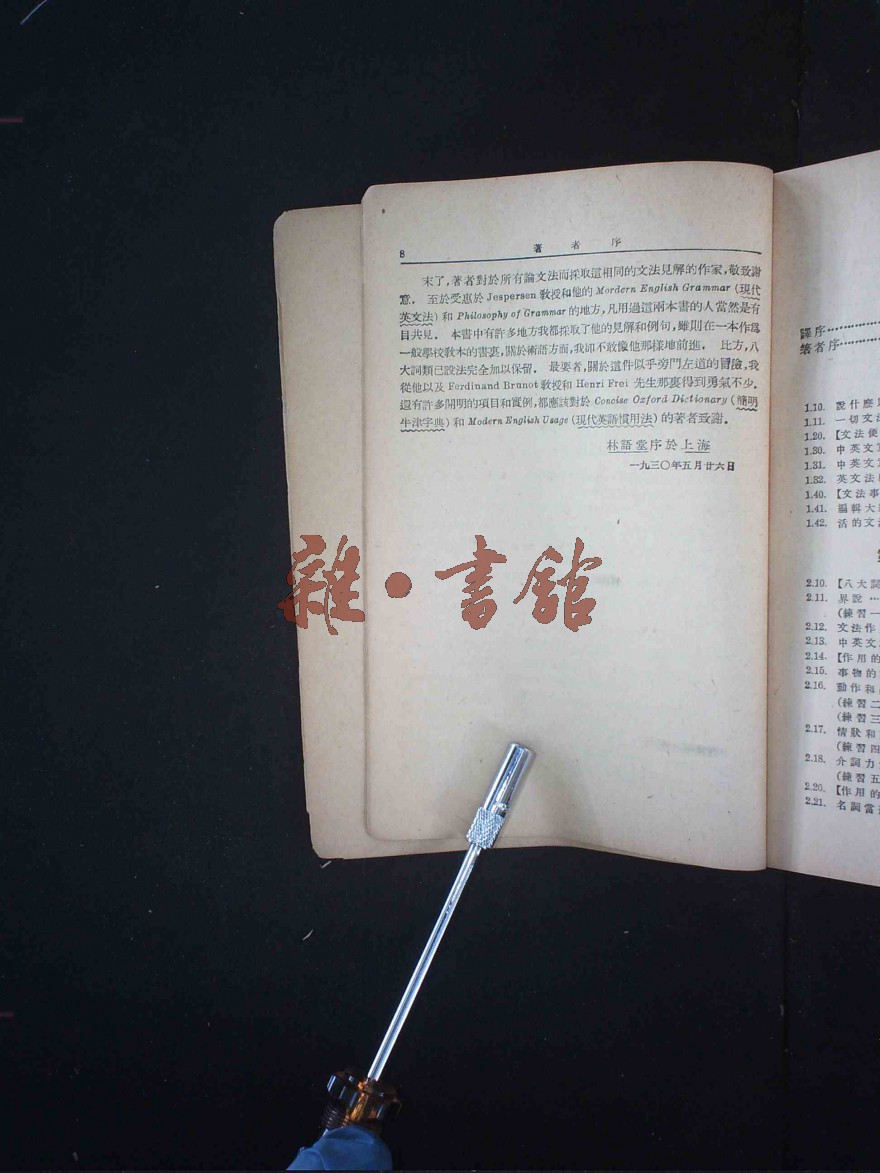 8
著者序
末了,著者對於所有論文法而採取這相同的文法見解的作家,敬致謝
意. 至於受惠於 Jespersen 敎授和他的 Mordern English Grammar (現代
英文法) 和 Philosophy of Grammar 的地方,凡用過這兩本書的人當然是有
目共見. 本書中有許多地方我都採取了他的見解和例句,雖則在一本作爲
一般學校敎本的書裏,關於術語方面,我卻不敢像他那樣地前進. 比方,八
大詞類已設法完全加以保留. 最要者,關於這件似乎旁門左道的冒險,我
從他以及 Ferdinand Brunot 敎授和 Henri Frei 先生那裏得到勇氣不少.
還有許多開明的項目和實例,都應該對於 Concise Oxford Dictionary (簡明
牛津字典) 和 Modern English Usage (現代英語慣用法) 的著者致謝.
林語堂序於上海
一九三〇年五月廿六日
雜•書舘
譯序
著者序
1.10. 說什麼
1.11. 一切文
1.20. 【文法使
1.30. 中英文
1.31. 中英文
1.32. 英文法
1.40. 【文法事
1.41. 編輯大
1.42. 活的文法
2.10. 【八大詞
2.11. 界說
(練習一
2.12. 文法作
2.13. 中英文
2.14. 【作用的
2.15. 事物的
2.16. 動作和
(練習二
(練習三
2.17. 情狀和
(練習四
2.18. 介詞力
(練習五
2.20. 【作用的
2.21. 名詞當